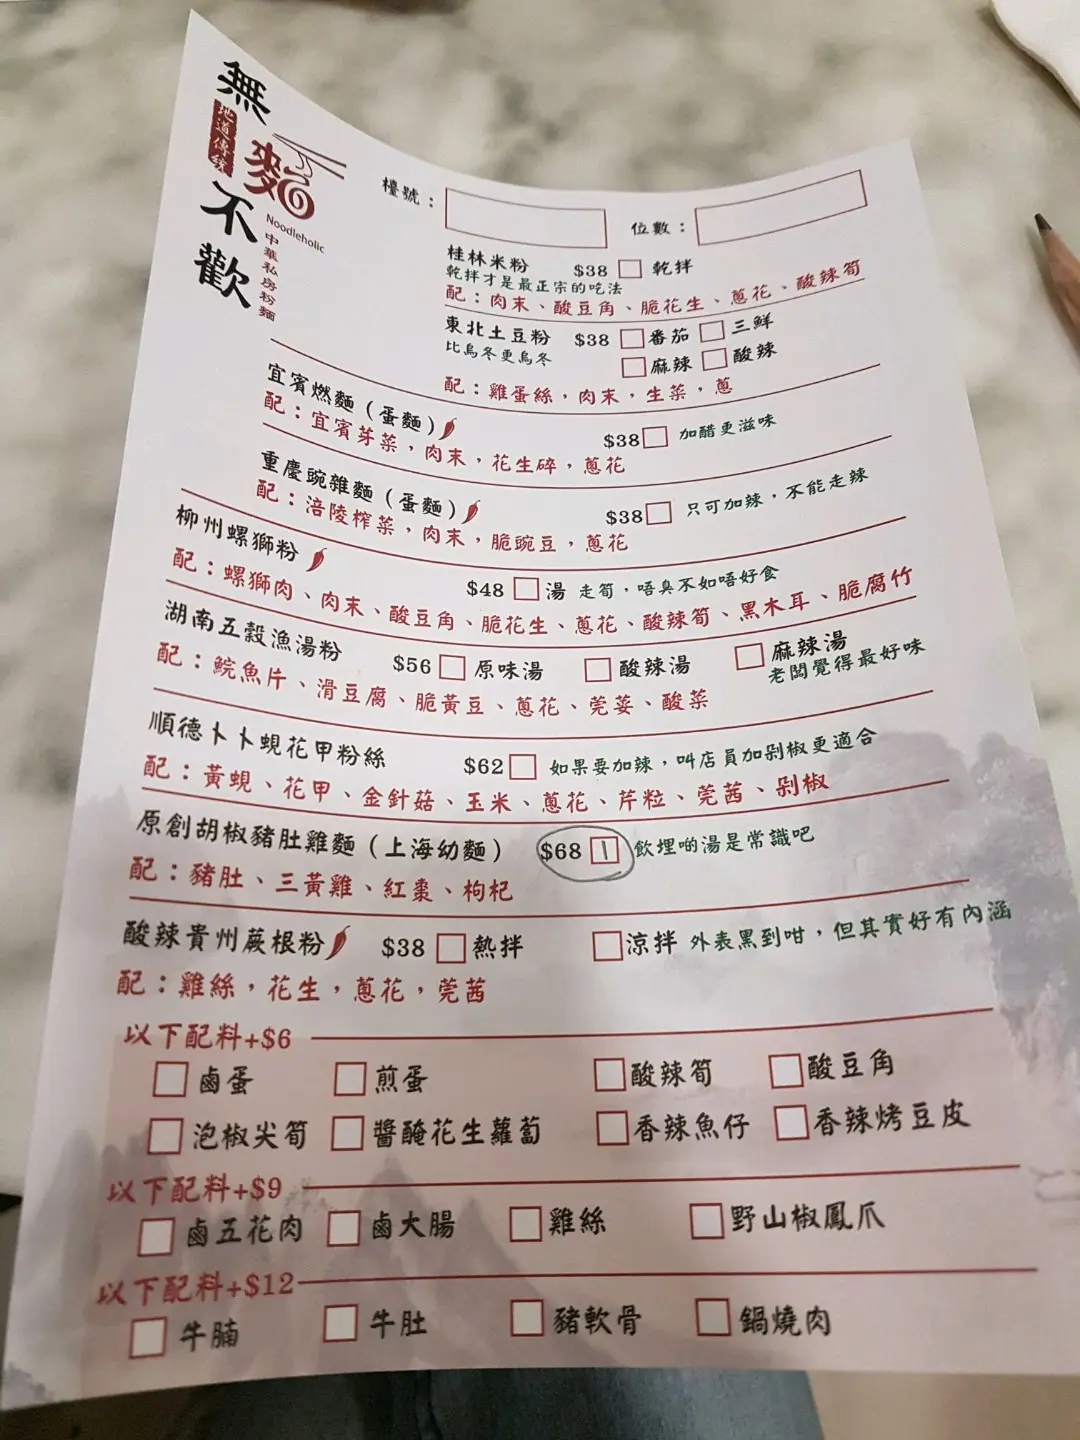 無麵不歡
地道傳統
Noodleholic
中華私房粉麵
檯號：
位數：
桂林米粉 $38 乾拌
乾拌才是最正宗的吃法
配：肉末、酸豆角、脆花生、蔥花、酸辣筍
東北土豆粉 $38 番茄 三鮮
比烏冬更烏冬 麻辣 酸辣
配：雞蛋絲，肉末，生菜，蔥
宜賓燃麵（蛋麵） $38 加醋更滋味
配：宜賓芽菜，肉末，花生碎，蔥花
重慶豌雜麵（蛋麵） $38 只可加辣，不能走辣
配：涪陵榨菜，肉末，脆豌豆，蔥花
柳州螺獅粉 $48 湯 走筍，唔臭不如唔好食
配：螺獅肉、肉末、酸豆角、脆花生、蔥花、酸辣筍、黑木耳、脆腐竹
湖南五穀漁湯粉 $56 原味湯 酸辣湯 麻辣湯
老闆覺得最好味
配：鯇魚片、滑豆腐、脆黃豆、蔥花、莞荽、酸菜
順德卜卜蜆花甲粉絲 $62 如果要加辣，叫店員加剁椒更適合
配：黃蜆、花甲、金針菇、玉米、蔥花、芹粒、莞茜、剁椒
原創胡椒豬肚雞麵（上海幼麵） $68 1 飲埋啲湯是常識吧
配：豬肚、三黃雞、紅棗、枸杞
酸辣貴州蕨根粉 $38 熱拌 涼拌 外表黑到咁，但其實好有內涵
配：雞絲，花生，蔥花，莞茜
以下配料+$6
鹵蛋 煎蛋 酸辣筍 酸豆角
泡椒尖筍 醬醃花生蘿蔔 香辣魚仔 香辣烤豆皮
以下配料+$9
鹵五花肉 鹵大腸 雞絲 野山椒鳳爪
以下配料+$12
牛腩 牛肚 豬軟骨 鍋燒肉